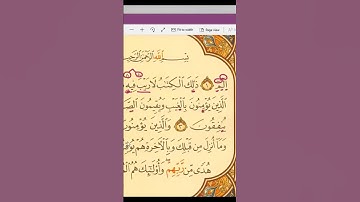 Fit to width
Page view
بِسْمِ اللَّهِ الرَّحْمَٰنِ الرَّحِيمِ
الٓمٓ ١ ذَٰلِكَ الْكِتَٰبُ لَا رَيْبَ فِيهِ
الَّذِينَ يُؤْمِنُونَ بِالْغَيْبِ وَيُقِيمُونَ
يُنفِقُونَ ٣ وَالَّذِينَ يُؤْمِنُونَ
وَمَا أُنزِلَ مِن قَبْلِكَ وَبِالْآخِرَةِ هُمْ
هُدًى مِّن رَّبِّهِمْ وَأُولَٰئِكَ هُمُ